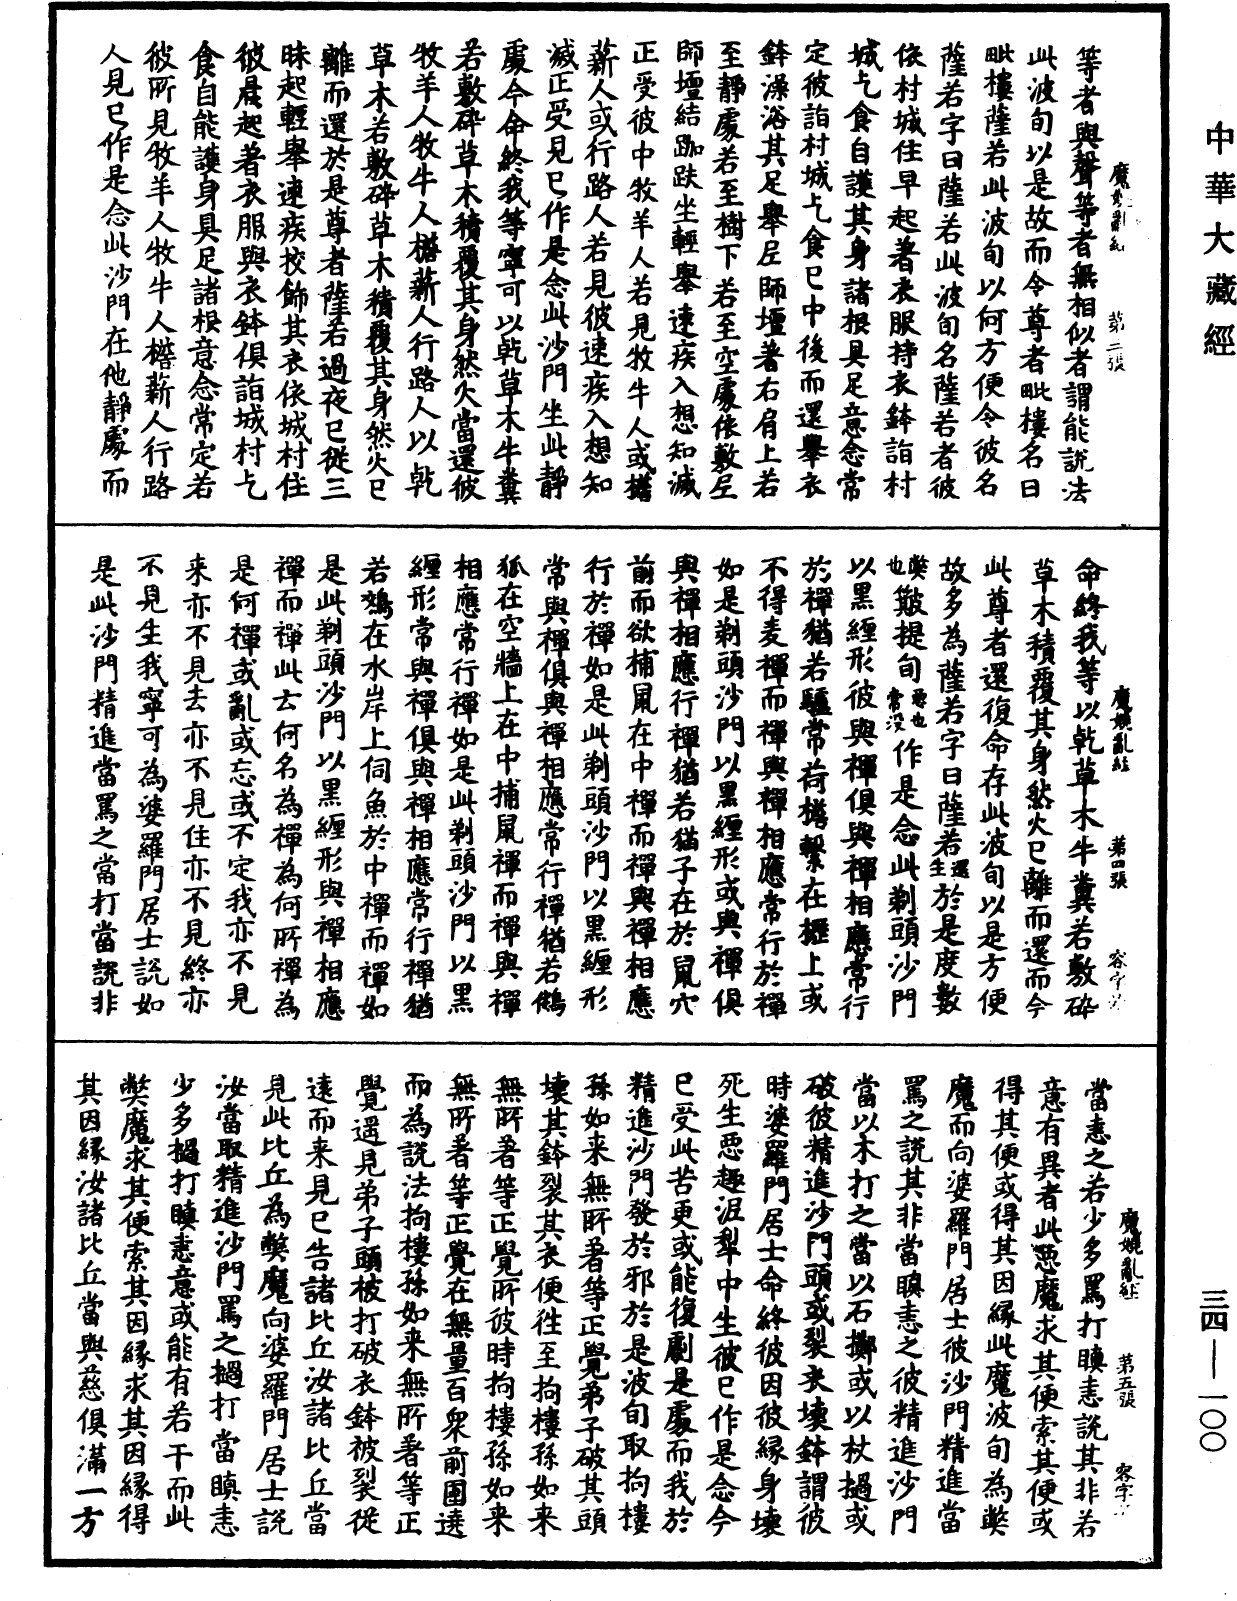 中華大藏經
等者與聲等者無相似者謂能說法
此波旬以是故而令尊者毗樓名曰
毗樓薩若此波旬以何方便令彼名
薩若字曰薩若此波旬名薩若者彼
依村城住早起著衣服持衣鉢詣村
城乞食自護其身諸根具足意念常
定彼詣村城乞食已中後而還舉衣
鉢澡浴其足舉尼師壇著右肩上若
至靜處若至樹下若至空處依敷尼
師壇結跏趺坐輕舉速疾入想知滅
正受彼中牧羊人若見牧牛人或擔
薪人或行路人若見彼速疾入想知
滅正受見已作是念此沙門生此靜
處今命終我等寧可以乾草木牛糞
若敷碎草木積覆其身然火當還彼
牧羊人牧牛人擔薪人行路人以乾
草木若敷碎草木積覆其身然火已
離而還於是尊者薩若過夜已從三
昧起輕舉速疾挍飾其衣依城村住
彼晨起著衣服與衣鉢俱詣城村乞
食自能護身具足諸根意念常定若
彼所見牧羊人牧牛人擔薪人行路
人見已作是念此沙門在他靜處而
魔嬈亂經 第三張
命終我等以乾草木牛糞若敷碎
草木積覆其身然火已離而還而今
此尊者還復命存此波旬以是方便
故多為薩若字曰薩若還生於是度數
弊也皺提旬惡也常沒作是念此剃頭沙門
以黑纏形彼與禪俱與禪相應常行
於禪猶若驢常荷擔繫在櫪上或
不得麦禪而禪與禪相應常行於禪
如是剃頭沙門以黑纏形或與禪俱
與禪相應行禪猶若猫子在於鼠穴
前而欲捕鼠在中禪而禪與禪相應
行於禪如是此剃頭沙門以黑纏形
常與禪俱與禪相應常行禪猶若鵂
狐在空牆上在中捕鼠禪而禪與禪
相應常行禪如是此剃頭沙門以黑
纏形常與禪俱與禪相應常行禪猶
若鵄在水岸上伺魚於中禪而禪如
是此剃頭沙門以黑纏形與禪相應
禪而禪此云何名為禪為何所禪為
是何禪或亂或忘或不定我亦不見
来亦不見去亦不見住亦不見終亦
不見生我寧可為婆羅門居士說如
是此沙門精進當罵之當打當說非
魔嬈亂經 第四張 容字号
當恚之若少多罵打瞋恚說其非若
意有異者此惡魔求其便索其便或
得其便或得其因縁此魔波旬為弊
魔而向婆羅門居士彼沙門精進當
罵之說其非當瞋恚之彼精進沙門
當以木打之當以石擲或以杖撾或
破彼精進沙門頭或裂衣壞鉢謂彼
時婆羅門居士命終彼因彼緣身壞
死生惡趣泥犁中生彼已作是念今
已受此苦更或能復劇是處而我於
精進沙門發於邪於是波旬取拘樓
孫如来無所著等正覺弟子破其頭
壞其鉢裂其衣便徃至拘樓孫如来
無所著等正覺所彼時拘樓孫如来
無所著等正覺在無量百衆前圍遶
而為說法拘樓孫如来無所著等正
覺遥見弟子頭被打破衣鉢被裂從
遠而来見已告諸比丘汝諸比丘當
見此比丘為弊魔向婆羅門居士說
汝當取精進沙門罵之撾打當瞋恚
少多撾打瞋恚意或能有若干而此
弊魔求其便索其因緣求其因緣得
其因縁汝諸比丘當與慈俱滿一方
魔嬈亂經 第五張 容字
三四—一〇〇